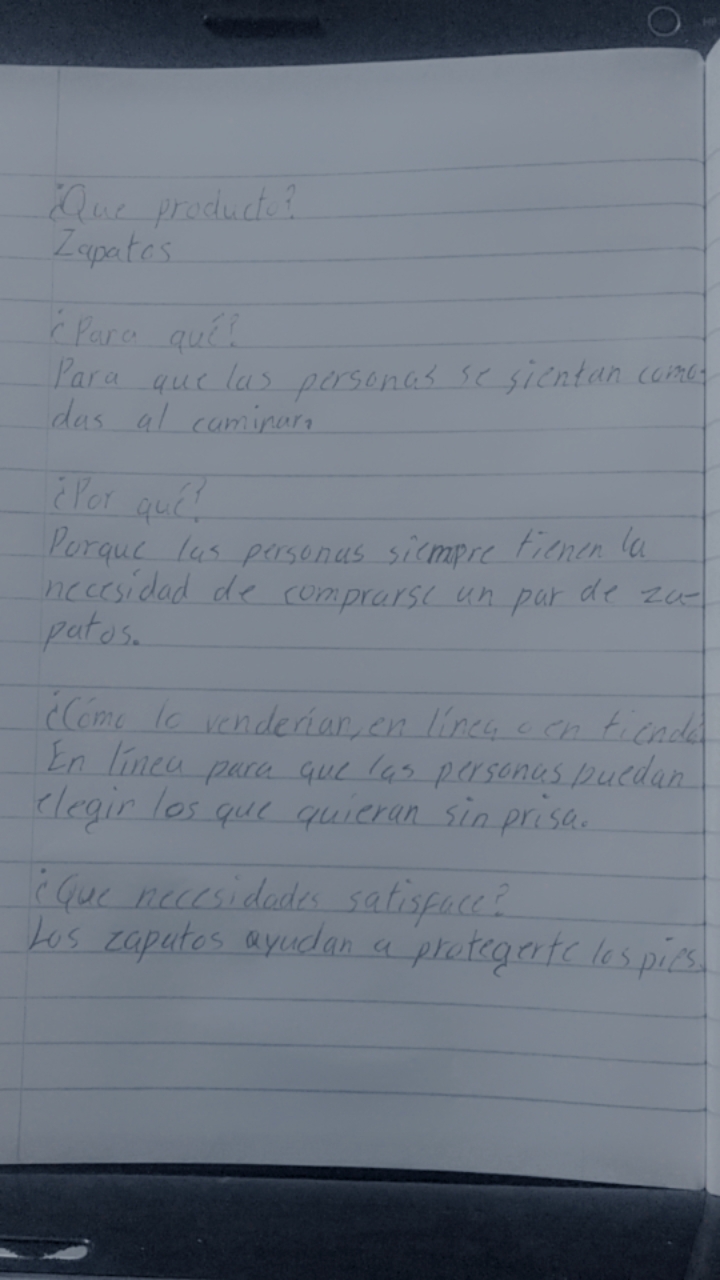 ¿Que producto?
Zapatos
¿Para qué?
Para que las personas se sientan como-
das al caminar.
¿Por qué?
Porque las personas siempre tienen la
necesidad de comprarse un par de za-
patos.
¿Cómo lo venderían, en línea o en tienda
En línea para que las personas puedan
elegir los que quieran sin prisa.
¿Que necesidades satisface?
Los zapatos ayudan a protegerte los pies.